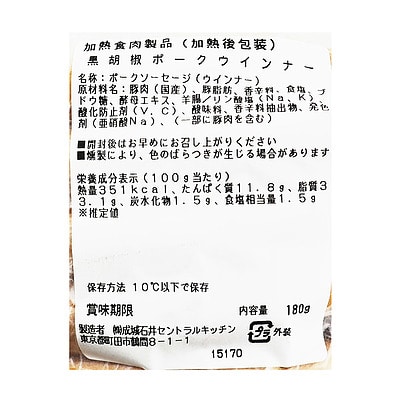 加熱食肉製品（加熱後包装）
黒胡椒ポークウインナー
名称：ポークソーセージ（ウインナー）
原材料名：豚肉（国産）、豚脂肪、香辛料、食塩、ブ
ドウ糖、酵母エキス、羊腸／リン酸塩（Ｎａ、Ｋ）、
酸化防止剤（Ｖ．Ｃ）、酸味料、香辛料抽出物、発色
剤（亜硝酸Ｎａ）、（一部に豚肉を含む）
■開封後はお早めにお召し上がりください
■燻製により、色のばらつきが生じる場合があります
栄養成分表示（１００ｇ当たり）
熱量３５１ｋｃａｌ、たんぱく質１１．８ｇ、脂質３
３．１ｇ、炭水化物１．５ｇ、食塩相当量１．５ｇ
※推定値
保存方法 10℃以下で保存
賞味期限
内容量 180g
製造者 ㈱成城石井セントラルキッチン
東京都町田市鶴間8-1-1
プラ 外装
15170